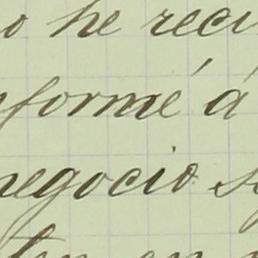 o he reci
nformé á
negocio s
ten en